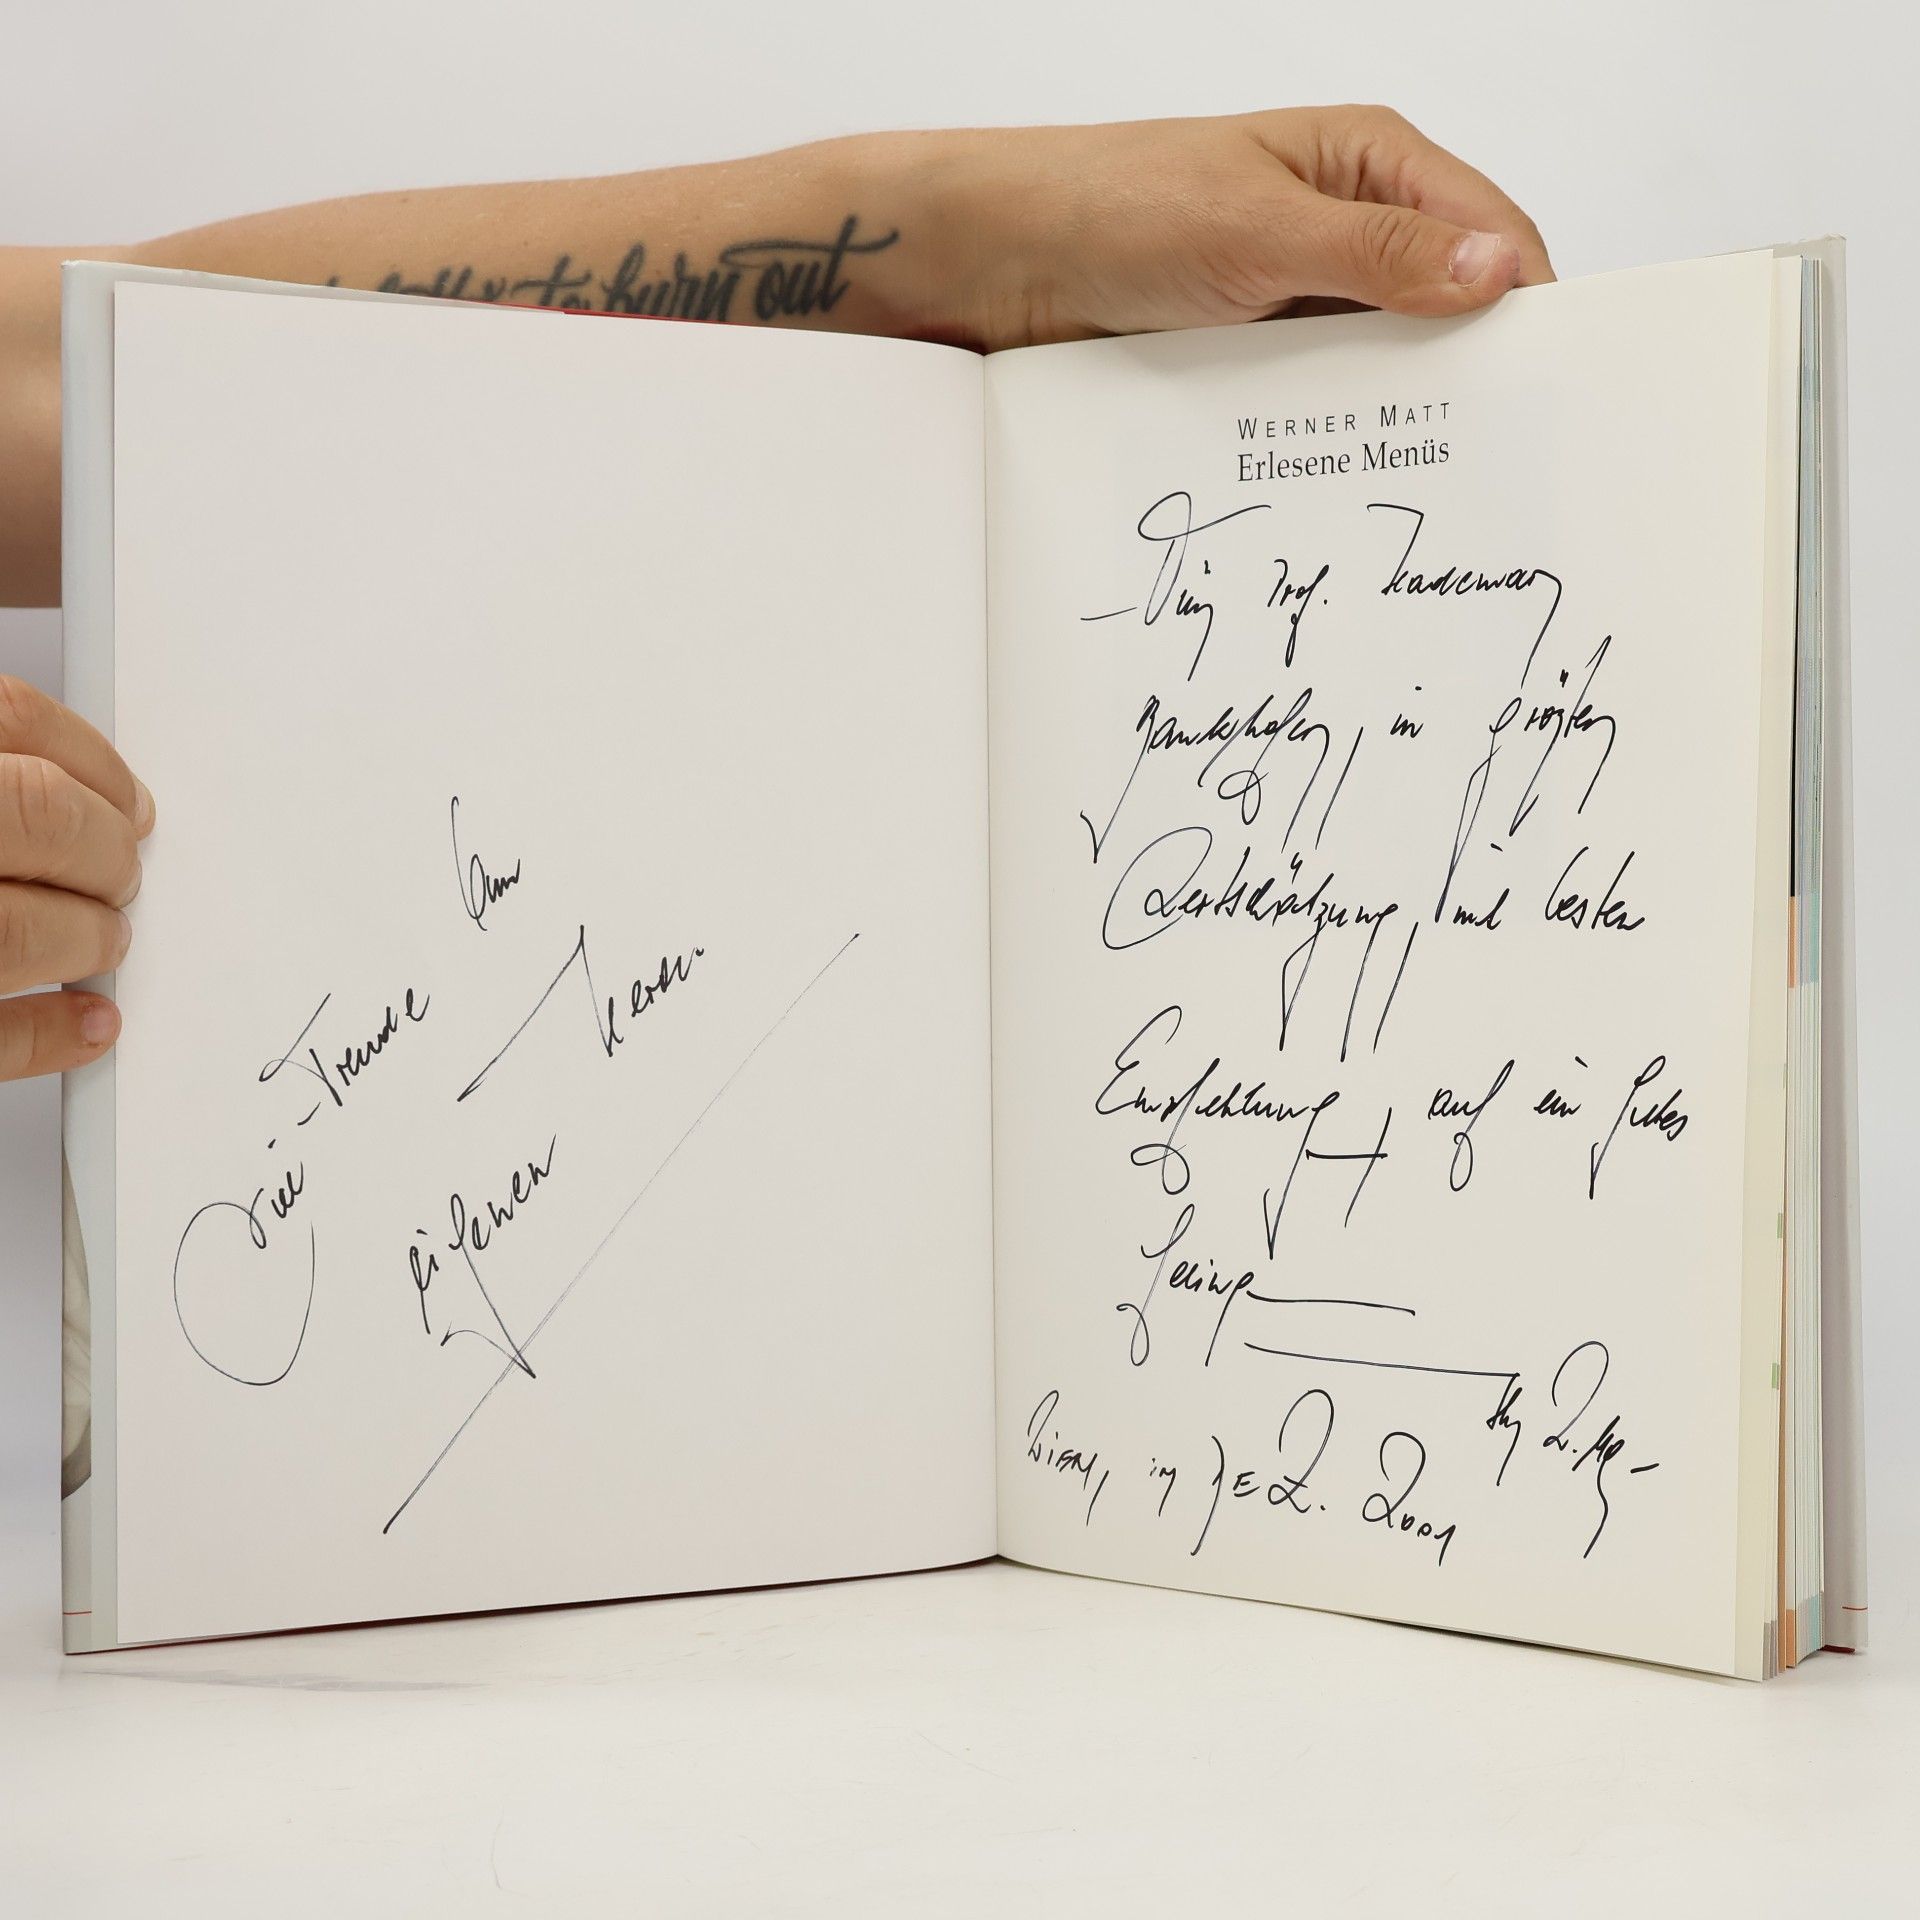 to burn out
Viel Freude
beim
Herd.
eigenen
WERNER MATT
Erlesene Menüs
Für Prof.
Bankhofer, in größter
Wertschätzung mit besten
Empfehlung, auf ein gutes
Gelingen
Ihr W.
Wien, im DEZ. 2001